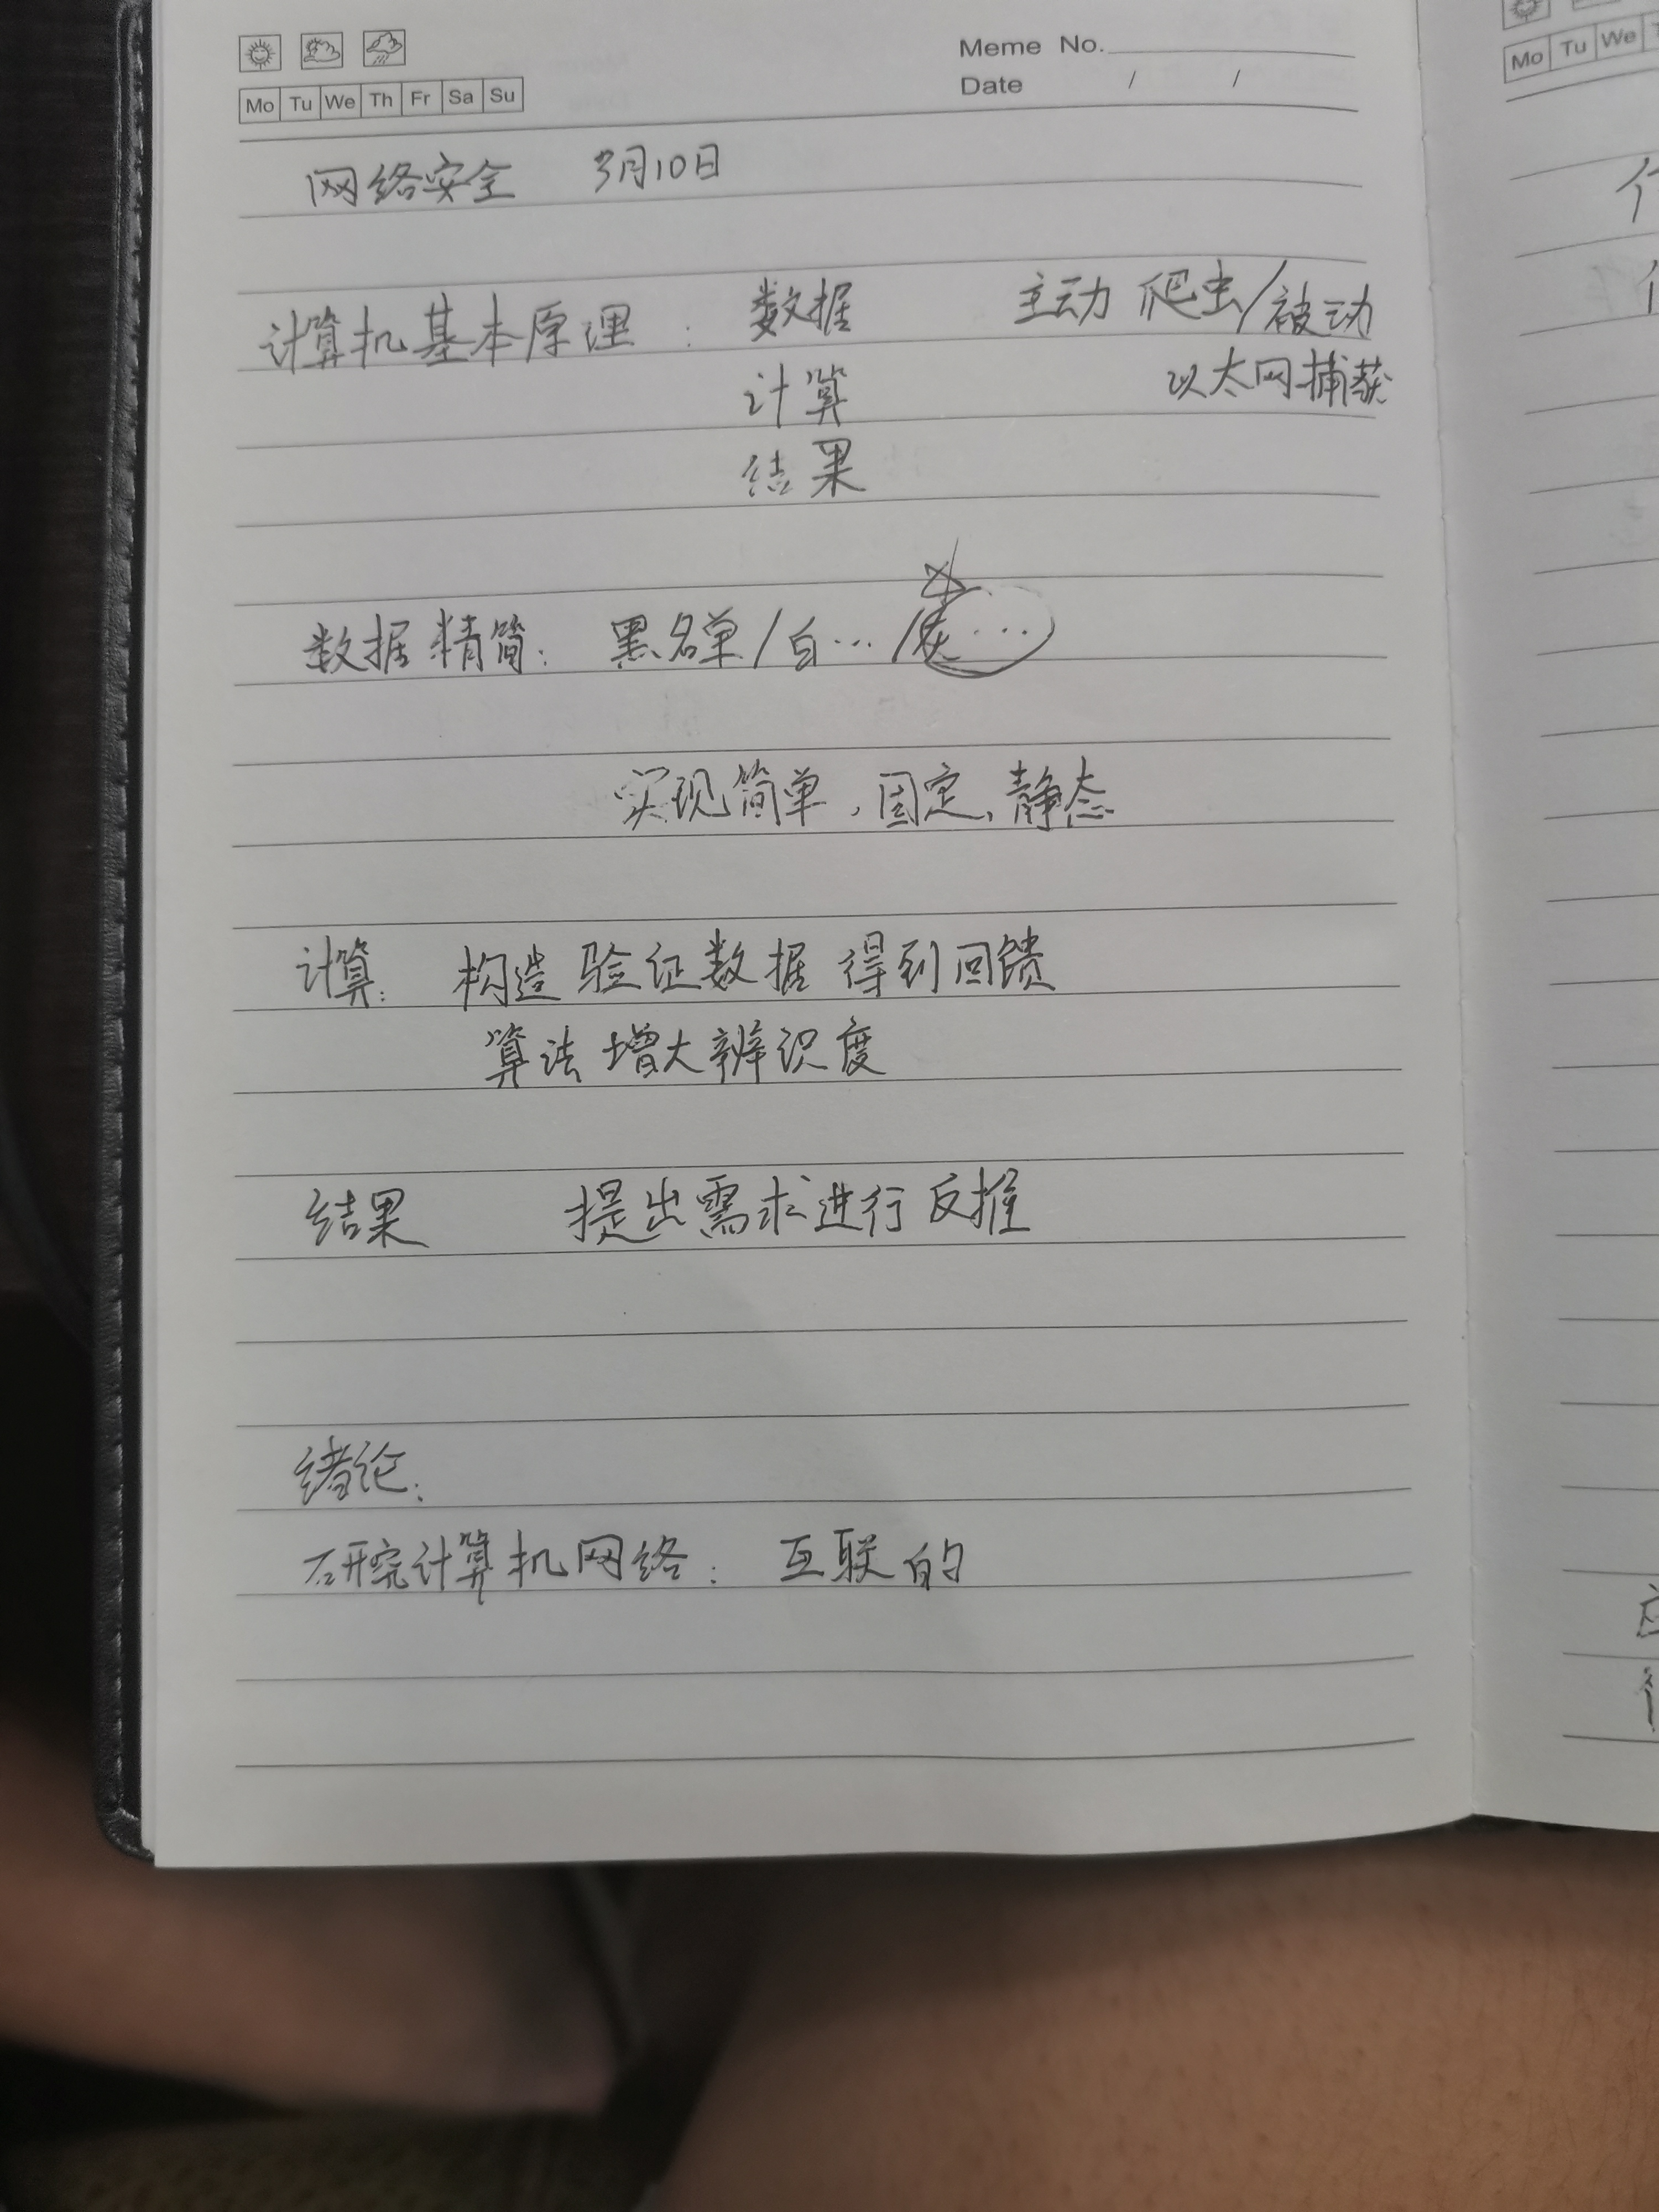 Meme No.
Mo Tu We Th Fr Sa Su
Date / /
Mo Tu We
网络安全 3月10日
计算机基本原理: 数据 主动 爬虫/被动
计算 以太网捕获
结果
数据精简: 黑名单/白…/灰…
实现简单,固定、静态
计算: 构造验证数据 得到回馈
算法增大辨识度
结果 提出需求进行反推
绪论:
研究计算机网络: 互联的